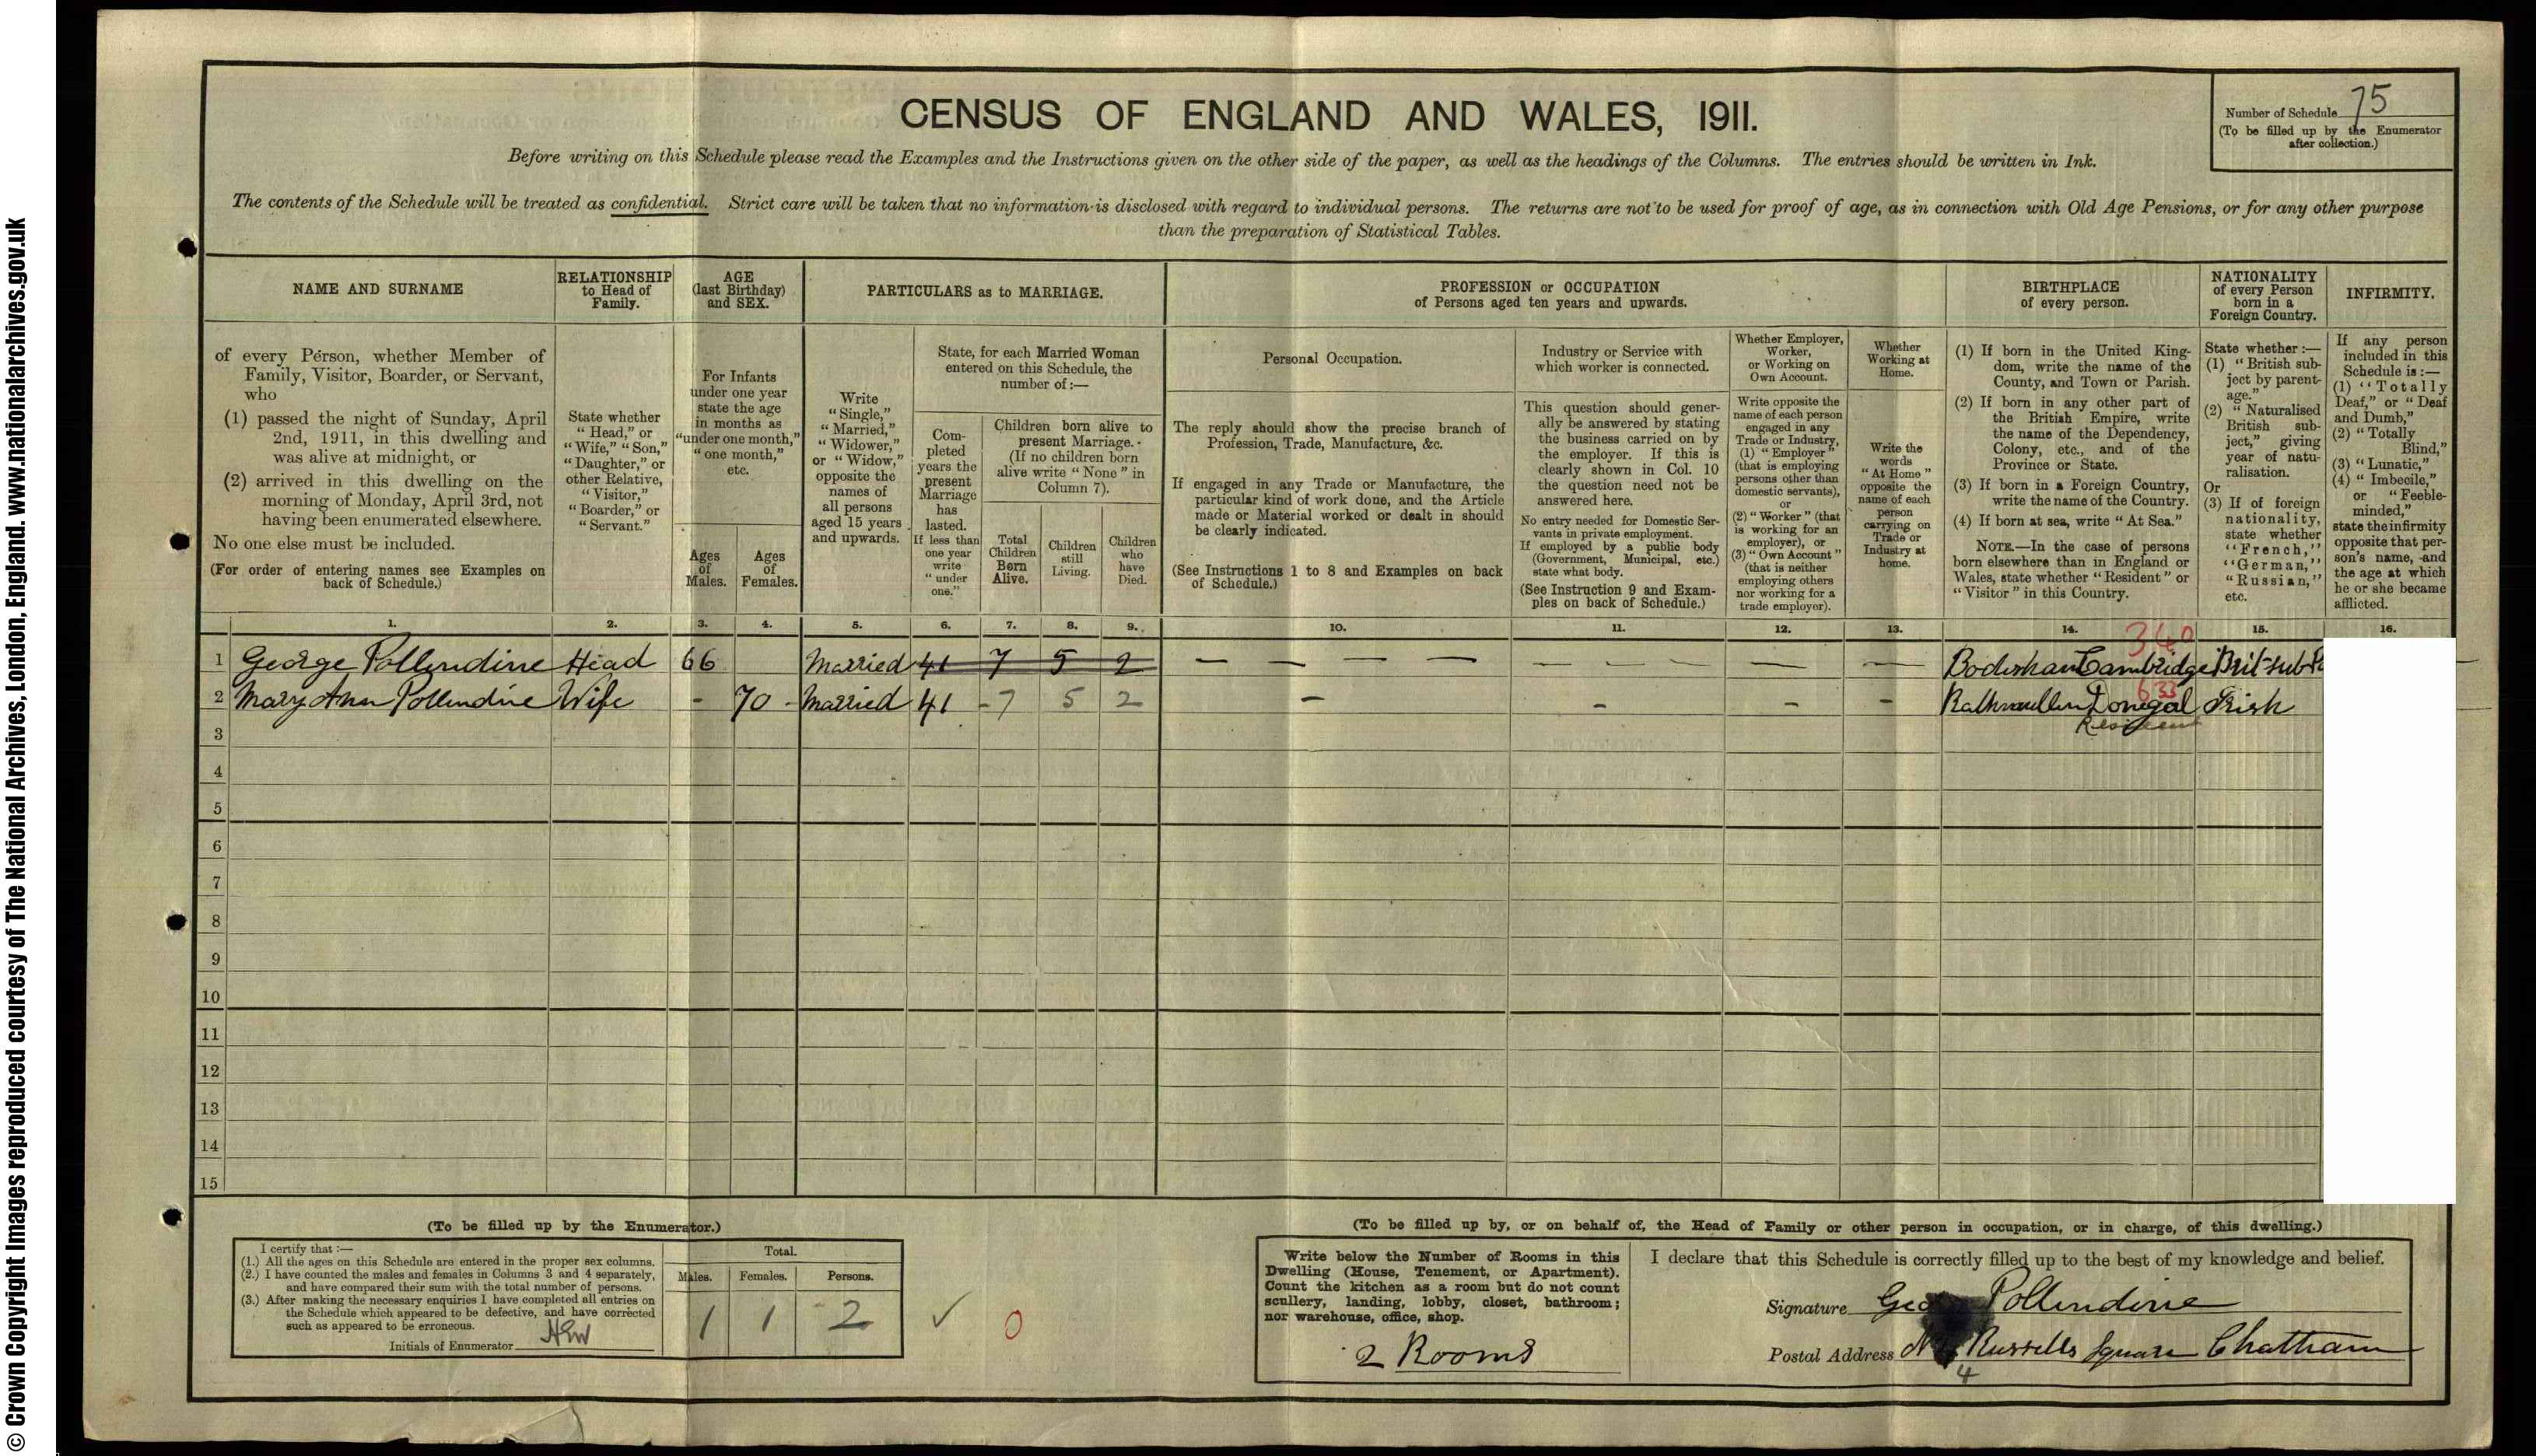 © Crown Copyright Images reproduced courtesy of The National Archives, London, England. www.nationalarchives.gov.uk
CENSUS OF ENGLAND AND WALES, 1911.
Number of Schedule 75
(To be filled up by the Enumerator
after collection.)
Before writing on this Schedule please read the Examples and the Instructions given on the other side of the paper, as well as the headings of the Columns. The entries should be written in Ink.
The contents of the Schedule will be treated as confidential. Strict care will be taken that no information is disclosed with regard to individual persons. The returns are not to be used for proof of age, as in connection with Old Age Pensions, or for any other purpose
than the preparation of Statistical Tables.
NAME AND SURNAME
of every Person, whether Member of
Family, Visitor, Boarder, or Servant,
who
(1) passed the night of Sunday, April
2nd, 1911, in this dwelling and
was alive at midnight, or
(2) arrived in this dwelling on the
morning of Monday, April 3rd, not
having been enumerated elsewhere.
No one else must be included.
(For order of entering names see Examples on
back of Schedule.)
RELATIONSHIP
to Head of
Family.
State whether
"Head," or
"Wife," "Son,"
"Daughter," or
other Relative,
"Visitor,"
"Boarder," or
"Servant."
AGE
(last Birthday)
and SEX.
For Infants
under one year
state the age
in months as
"under one month,"
"one month,"
etc.
Ages
of
Males.
Ages
of
Females.
PARTICULARS as to MARRIAGE.
Write
"Single,"
"Married,"
"Widower,"
or "Widow,"
opposite the
names of
all persons
aged 15 years
and upwards.
State, for each Married Woman
entered on this Schedule, the
number of:—
Com-
pleted
years the
present
Marriage
has
lasted.
If less than
one year
write
"under
one."
Children born alive to
present Marriage.
(If no children born
alive write "None" in
Column 7).
Total
Children
Born
Alive.
Children
still
Living.
Children
who
have
Died.
PROFESSION or OCCUPATION
of Persons aged ten years and upwards.
Personal Occupation.
The reply should show the precise branch of
Profession, Trade, Manufacture, &c.
If engaged in any Trade or Manufacture, the
particular kind of work done, and the Article
made or Material worked or dealt in should
be clearly indicated.
(See Instructions 1 to 8 and Examples on back
of Schedule.)
Industry or Service with
which worker is connected.
This question should gener-
ally be answered by stating
the business carried on by
the employer. If this is
clearly shown in Col. 10
the question need not be
answered here.
No entry needed for Domestic Ser-
vants in private employment.
If employed by a public body
(Government, Municipal, etc.)
state what body.
(See Instruction 9 and Exam-
ples on back of Schedule.)
Whether Employer,
Worker,
or Working on
Own Account.
Write opposite the
name of each person
engaged in any
Trade or Industry,
(1) "Employer"
(that is employing
persons other than
domestic servants),
or
(2) "Worker" (that
is working for an
employer), or
(3) "Own Account"
(that is neither
employing others
nor working for a
trade employer).
Whether
Working at
Home.
Write the
words
"At Home"
opposite the
name of each
person
carrying on
Trade or
Industry at
home.
BIRTHPLACE
of every person.
(1) If born in the United King-
dom, write the name of the
County, and Town or Parish.
(2) If born in any other part of
the British Empire, write
the name of the Dependency,
Colony, etc., and of the
Province or State.
(3) If born in a Foreign Country,
write the name of the Country.
(4) If born at sea, write "At Sea."
NOTE.—In the case of persons
born elsewhere than in England or
Wales, state whether "Resident" or
"Visitor" in this Country.
NATIONALITY
of every Person
born in a
Foreign Country.
State whether:—
(1) "British sub-
ject by parent-
age."
(2) "Naturalised
British sub-
ject," giving
year of natu-
ralisation.
Or
(3) If of foreign
nationality,
state whether
"French,"
"German,"
"Russian,"
etc.
INFIRMITY.
If any person
included in this
Schedule is:—
(1) "Totally
Deaf," or "Deaf
and Dumb,"
(2) "Totally
Blind,"
(3) "Lunatic,"
(4) "Imbecile,"
or "Feeble-
minded,"
state the infirmity
opposite that per-
son's name, and
the age at which
he or she became
afflicted.
1. 2. 3. 4. 5. 6. 7. 8. 9. 10. 11. 12. 13. 14. 15. 16.
340
1 George Pollendine Head 66 Married 41 7 5 2 — — — — — — — — — — — Cambridge Brit-sub
633
2 Mary Ann Pollendine Wife - 70 - Married 41 - 7 5 2 - - - - Donegal Irish
Resident
3
4
5
6
7
8
9
10
11
12
13
14
15
(To be filled up by the Enumerator.)
I certify that:—
(1.) All the ages on this Schedule are entered in the proper sex columns.
(2.) I have counted the males and females in Columns 3 and 4 separately,
and have compared their sum with the total number of persons.
(3.) After making the necessary enquiries I have completed all entries on
the Schedule which appeared to be defective, and have corrected
such as appeared to be erroneous.
Initials of Enumerator
Total.
Males. Females. Persons.
1 1 2 ✓ 0
(To be filled up by, or on behalf of, the Head of Family or other person in occupation, or in charge, of this dwelling.)
Write below the Number of Rooms in this
Dwelling (House, Tenement, or Apartment).
Count the kitchen as a room but do not count
scullery, landing, lobby, closet, bathroom;
nor warehouse, office, shop.
2 Rooms
I declare that this Schedule is correctly filled up to the best of my knowledge and belief.
Signature Pollendine
Postal Address Russells Square Chatham
4